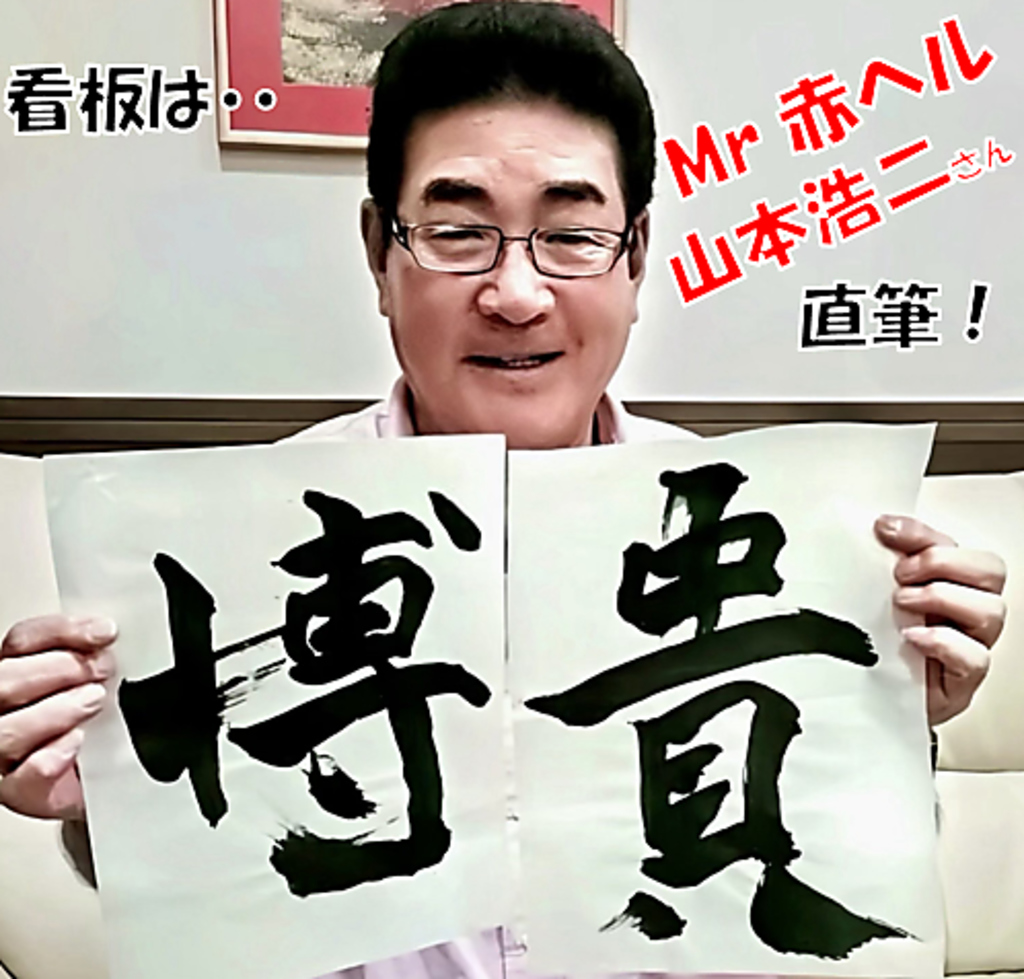 看板は・・
Mr 赤ヘル
山本浩二さん
直筆！
博貴